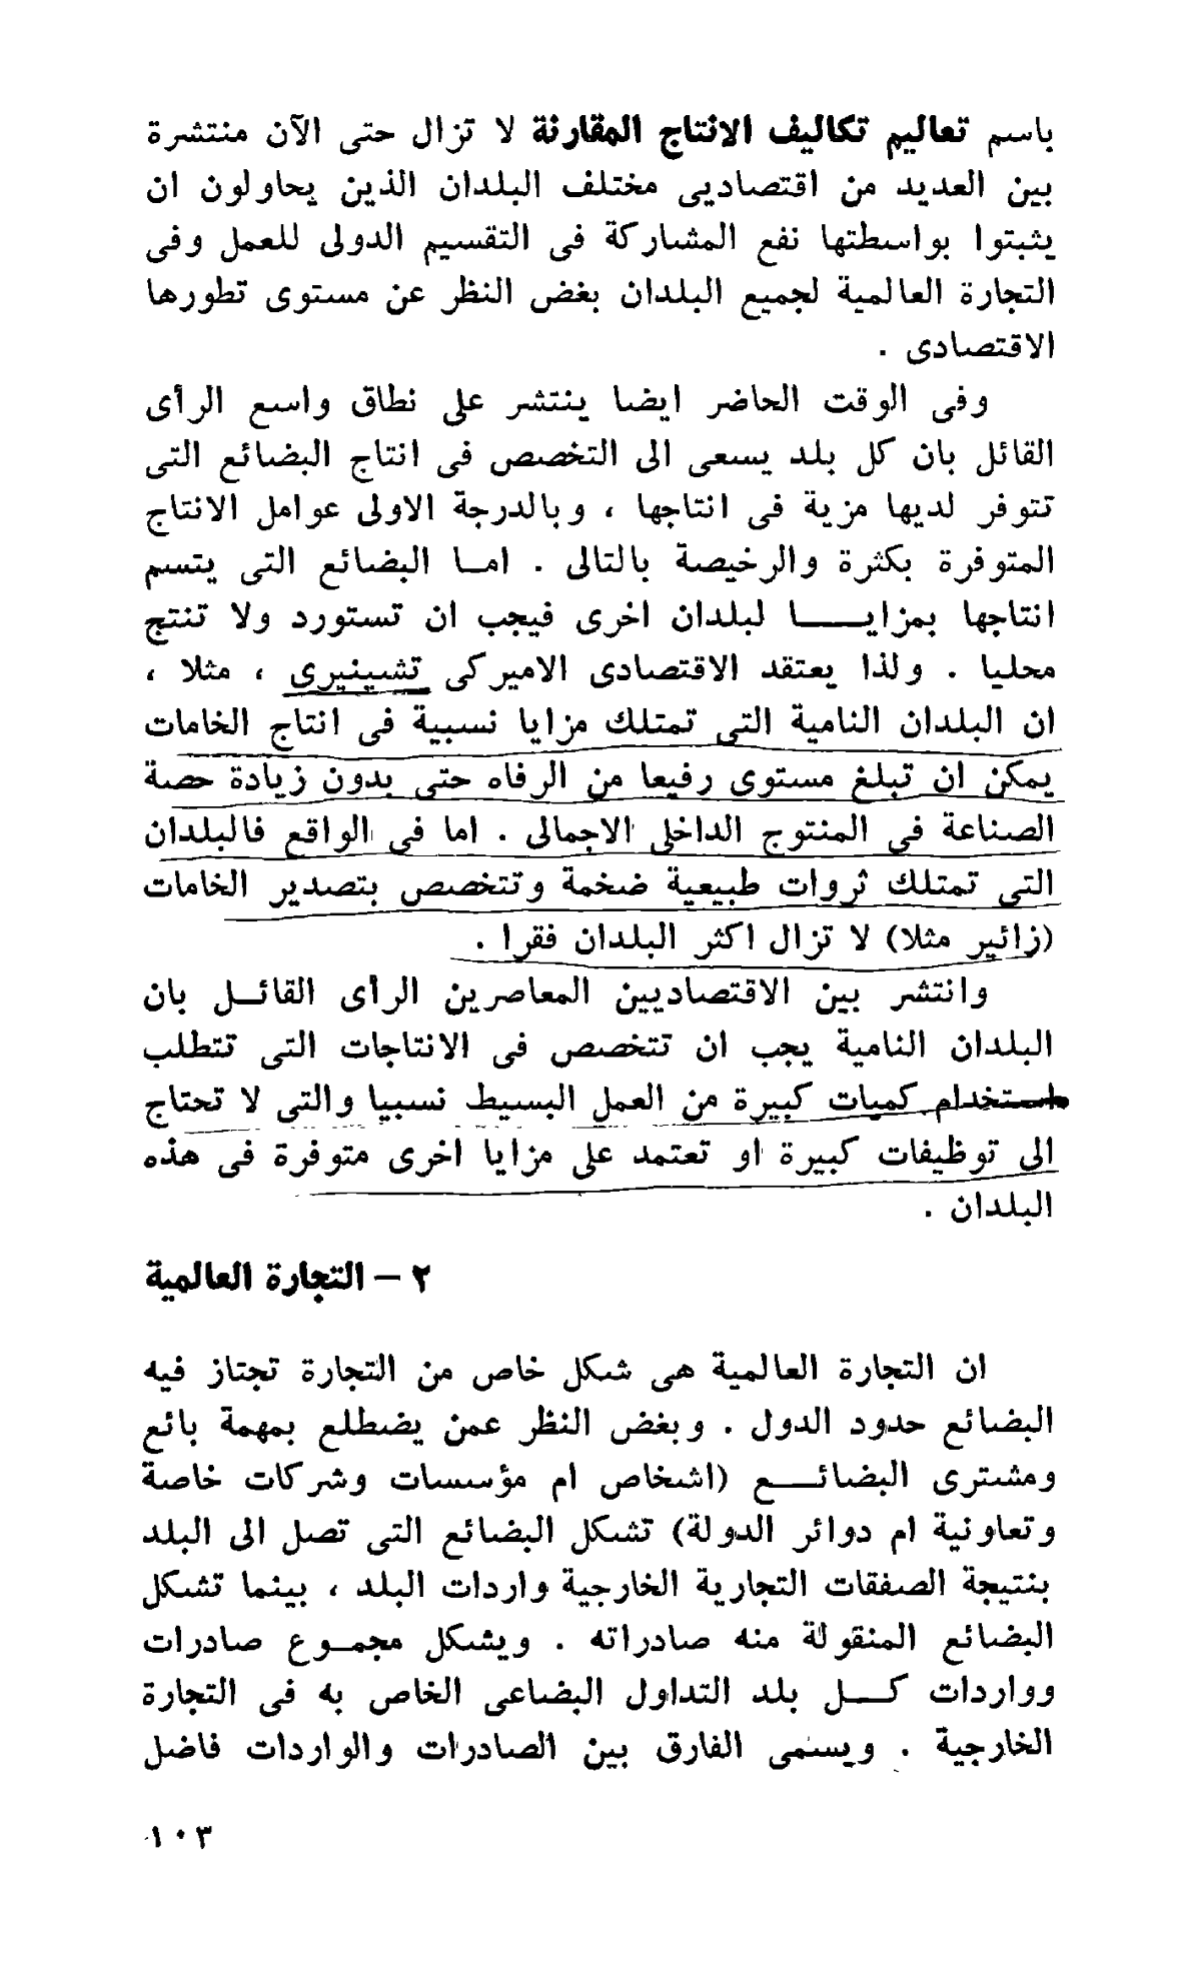 باسم تعاليم تكاليف الانتاج المقارنة لا تزال حتى الآن منتشرة
بين العديد من اقتصاديى مختلف البلدان الذين يحاولون ان
يثبتوا بواسطتها نفع المشاركة فى التقسيم الدولى للعمل وفى
التجارة العالمية لجميع البلدان بغض النظر عن مستوى تطورها
الاقتصادى .
وفى الوقت الحاضر ايضا ينتشر على نطاق واسع الرأى
القائل بان كل بلد يسعى الى التخصص فى انتاج البضائع التى
تتوفر لديها مزية فى انتاجها ، وبالدرجة الاولى عوامل الانتاج
المتوفرة بكثرة والرخيصة بالتالى . امـا البضائع التى يتسم
انتاجها بمزايـــــا لبلدان اخرى فيجب ان تستورد ولا تنتج
محليا . ولذا يعتقد الاقتصادى الاميركى تشينيرى ، مثلا ،
ان البلدان النامية التى تمتلك مزايا نسبية فى انتاج الخامات
يمكن ان تبلغ مستوى رفيعا من الرفاه حتى بدون زيادة حصة
الصناعة فى المنتوج الداخلى الاجمالى . اما فى الواقع فالبلدان
التى تمتلك ثروات طبيعية ضخمة وتتخصص بتصدير الخامات
(زائير مثلا) لا تزال اكثر البلدان فقرا .
وانتشر بين الاقتصاديين المعاصرين الرأى القائـل بان
البلدان النامية يجب ان تتخصص فى الانتاجات التى تتطلب
استخدام كميات كبيرة من العمل البسيط نسبيا والتى لا تحتاج
الى توظيفات كبيرة او تعتمد على مزايا اخرى متوفرة فى هذه
البلدان .
٢ – التجارة العالمية
ان التجارة العالمية هى شكل خاص من التجارة تجتاز فيه
البضائع حدود الدول . وبغض النظر عمن يضطلع بمهمة بائع
ومشترى البضائـــع (اشخاص ام مؤسسات وشركات خاصة
وتعاونية ام دوائر الدولة) تشكل البضائع التى تصل الى البلد
بنتيجة الصفقات التجارية الخارجية واردات البلد ، بينما تشكل
البضائع المنقولة منه صادراته . ويشكل مجمـوع صادرات
وواردات كـــل بلد التداول البضاعى الخاص به فى التجارة
الخارجية . ويسمى الفارق بين الصادرات والواردات فاضل
١٠٣